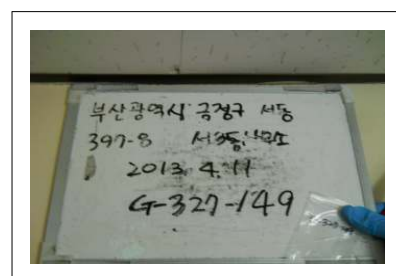 부산광역시 금정구 서동
397-8
2013. 4. 11
G-327-149